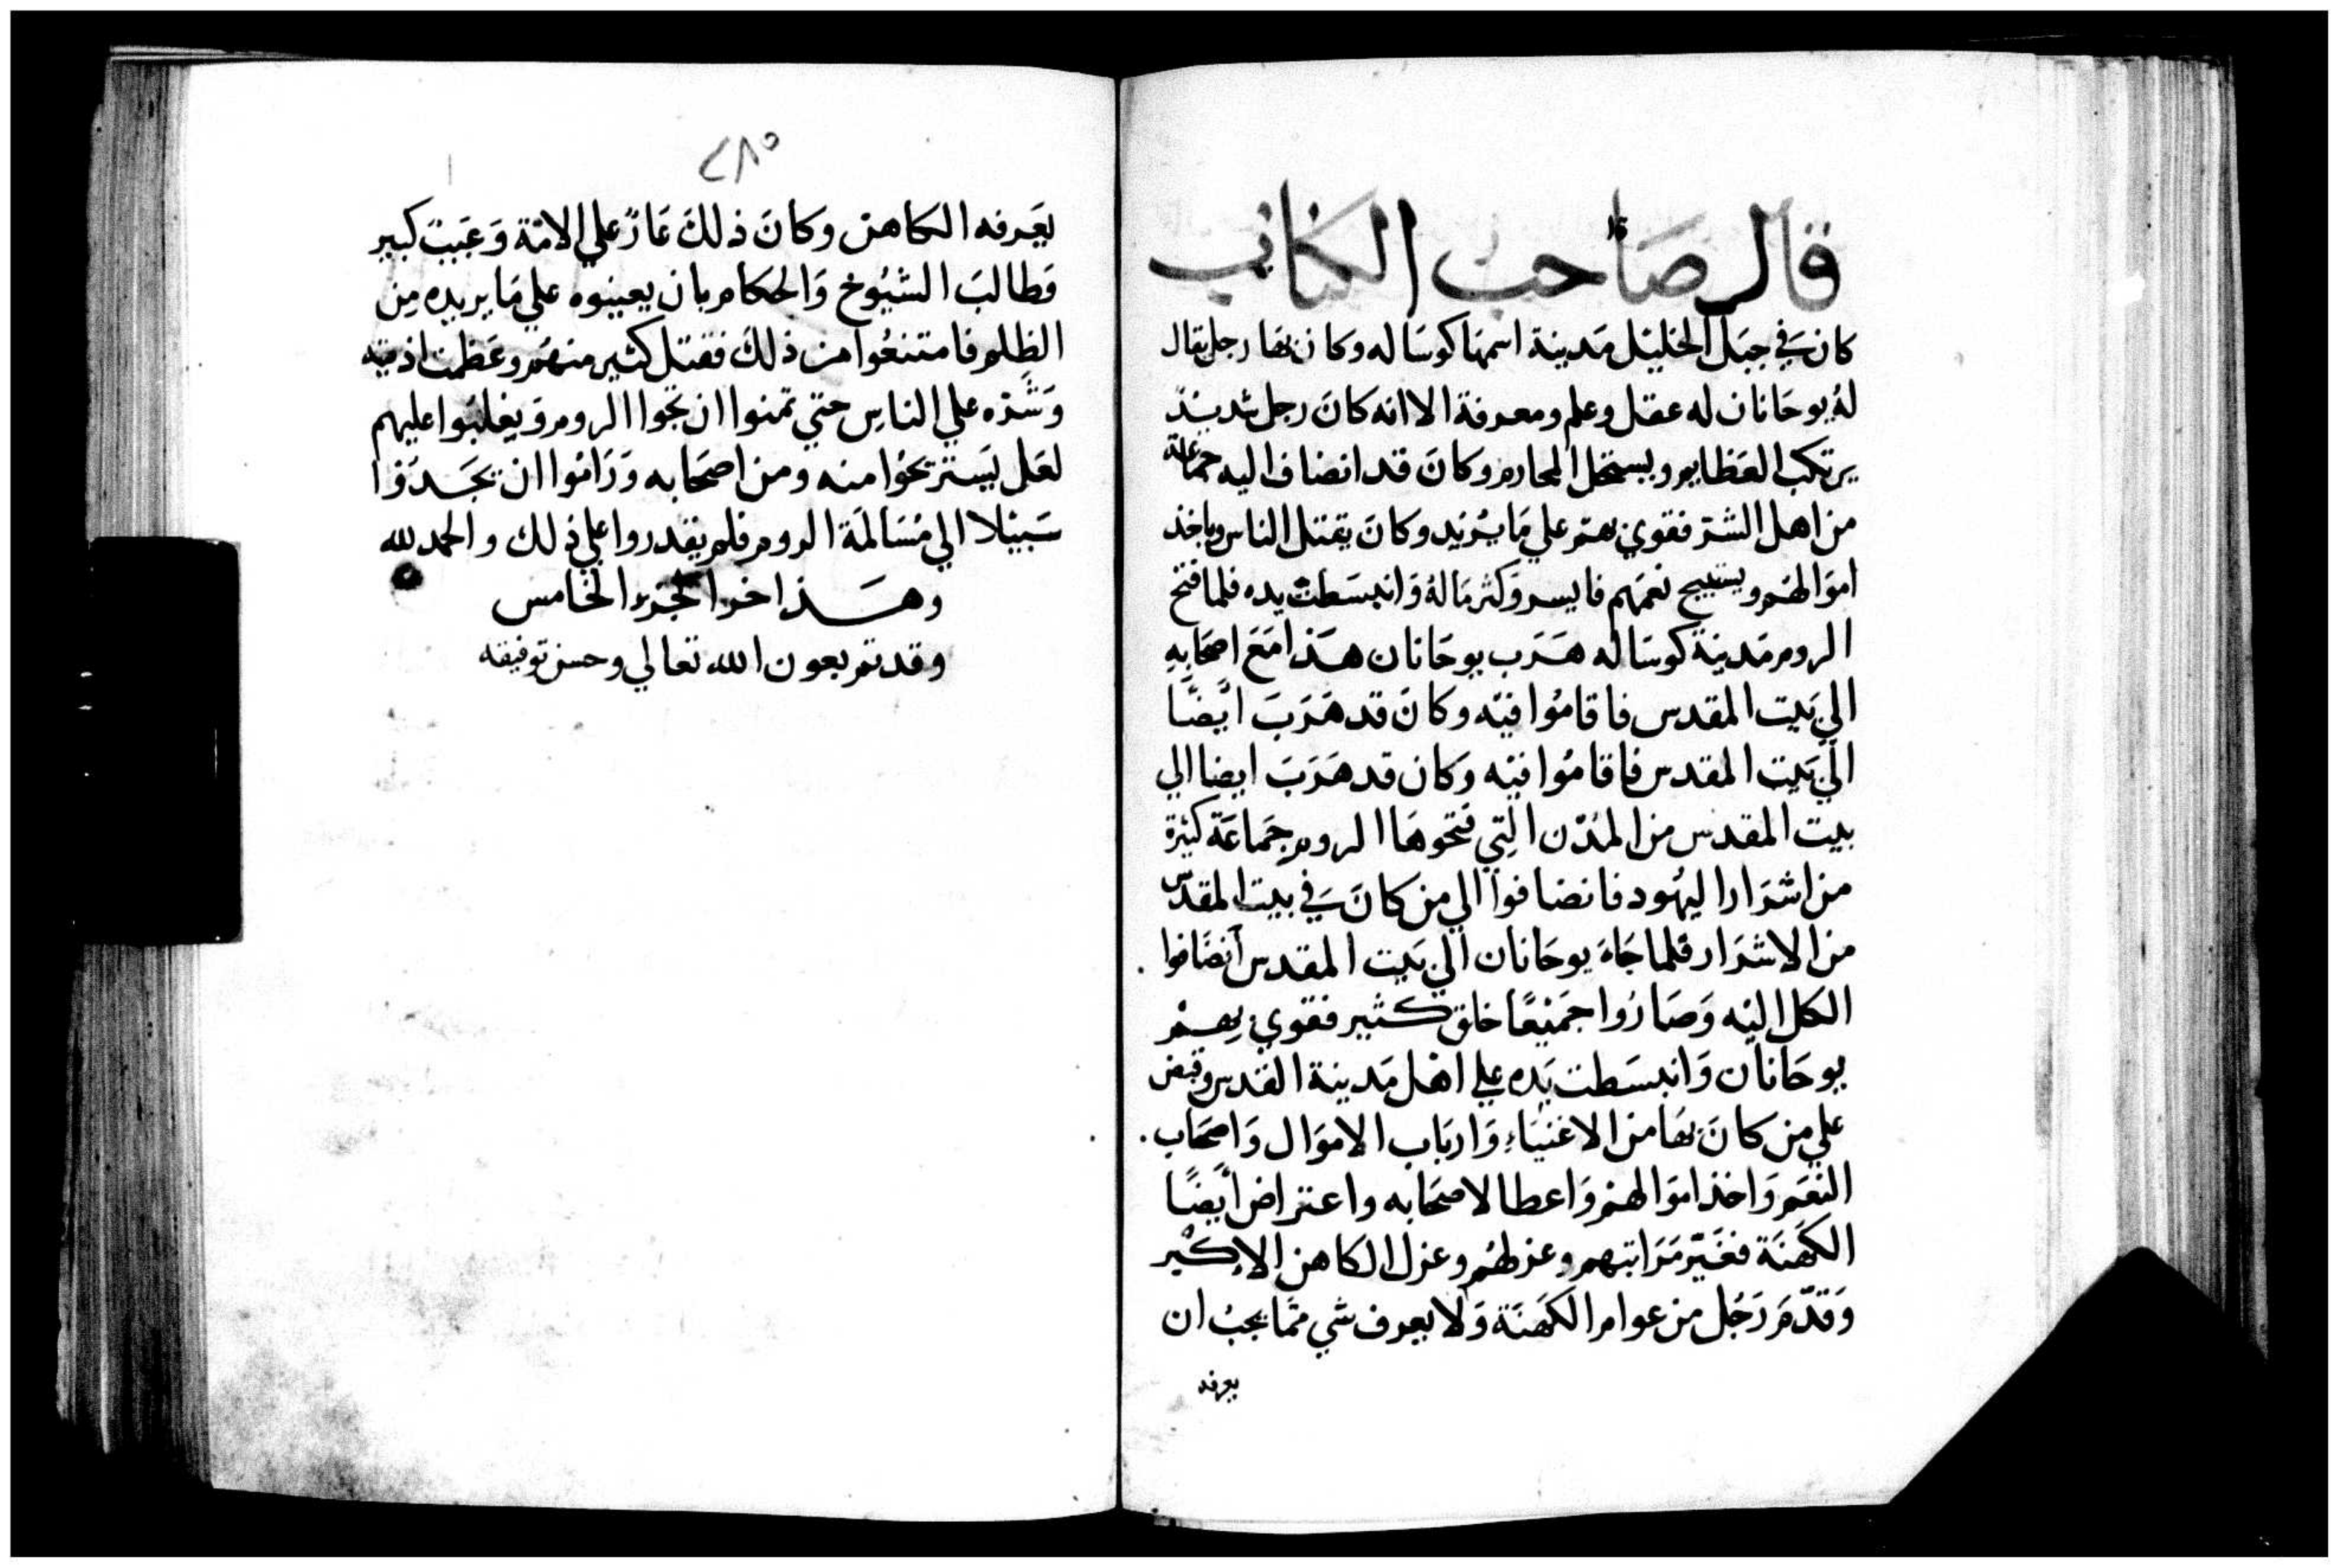 قال صاحب الكتاب
كان في جبل الخليل مدينة اسمها كوساله وكان بها رجل يقال
له يوحانان له عقل وعلم ومعرفة الا انه كان رجل
يرتكب العظايم ويستحل المحارم وكان قد انضاف اليه جماعة
من اهل الشر فقوي بهم علي ما يريد وكان يقتل الناس وياخذ
اموالهم ويستبيح نعمهم فايسر وكثر ماله وانبسطت يده فلما فتح
الروم مدينة كوساله هرب يوحانان هذا مع اصحابه
الي بيت المقدس فاقاموا فيه وكان قد هرب ايضًا
الي بيت المقدس فاقاموا فيه وكان قد هرب ايضا الي
بيت المقدس من المدن التي فتحوها الروم جماعة كثيرة
من اشرار اليهود فانضافوا الي من كان في بيت المقدس
من الاشرار فلما جاء يوحانان الي بيت المقدس انضافوا
الكل اليه وصاروا جميعًا خلق كثير فقوي بهم
يوحانان وانبسطت يده علي اهل مدينة القدس وقبض
علي من كان بها من الاغنياء وارباب الاموال واصحاب
النعم واخذ اموالهم واعطا لاصحابه واعتراض ايضًا
الكهنة فغيّر مراتبهم وعزلهم وعزل الكاهن الاكبر
وقدّم رجل من عوام الكهنة ولا يعرف شي ممّا يجب ان
يعرفه
٢٨٥
يعرفه الكاهن وكان ذلك عارًا علي الامّة وعيب كبير
وطالب الشيوخ والحكام بان يعينوه علي ما يريده من
الظلم فامتنعوا من ذلك فقتل كثير منهم وعظمت اذيته
وشرّه علي الناس حتي تمنوا ان تجوا الروم ويغلبوا عليهم
لعل يستريحوا منه ومن اصحابه وراموا ان يجدوا
سبيلا الي مسالمة الروم فلم يقدروا علي ذلك والحمد لله
وهذا اخر الجزء الخامس
وقد تم بعون الله تعالي وحسن توفيقه